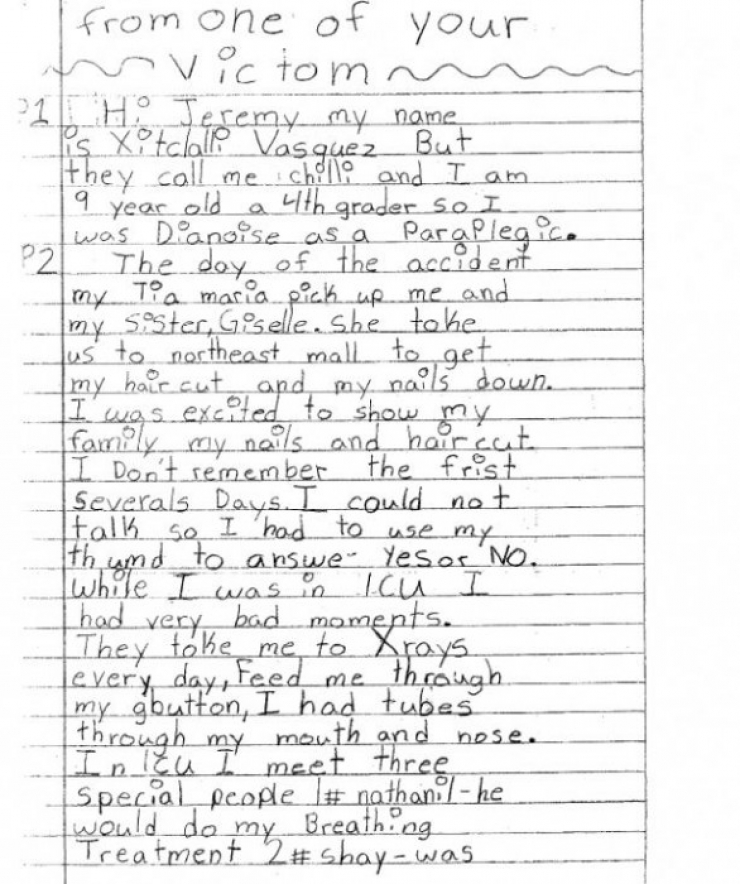 from one of your
Victom
P1 Hi Jeremy my name
is Xitclalli Vasquez But
they call me chilli and I am
9 year old a 4th grader so I
was Dianoise as a Paraplegic.
P2 The day of the accident
my Tia maria pick up me and
my Sister, Giselle. She toke
us to northeast mall to get
my haircut and my nails down.
I was excited to show my
family my nails and haircut.
I Don't remember the frist
severals Days. I could not
talk so I had to use my
thumd to answe- Yes or NO.
While I was in ICU I
had very bad moments.
They toke me to Xrays
every day, Feed me through
my gbutton, I had tubes
through my mouth and nose.
In ICU I meet three
special people 1# nathanil-he
would do my Breathing
Treatment 2# shay-was